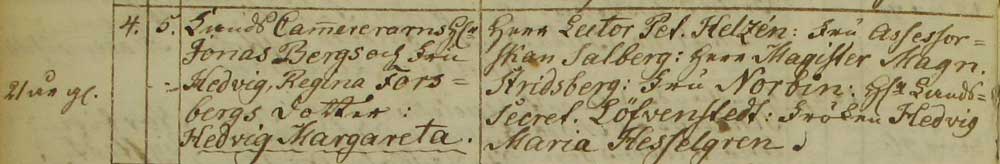 4. 5. Lands Camererarns H:r
Jonas Bergs och Fru
Hedvig, Regina Fors=
bergs Dotter:
Hedvig Margareta.
21 år gl.
Herr Lector Pet. Helzén: Fru Assessor=
skan Salberg: Herr Magister Magn.
Stridsberg: Fru Norbin: H:r Lands=
Secret. Löfvenstedt: Fröken Hedvig
Maria Hesselgren.